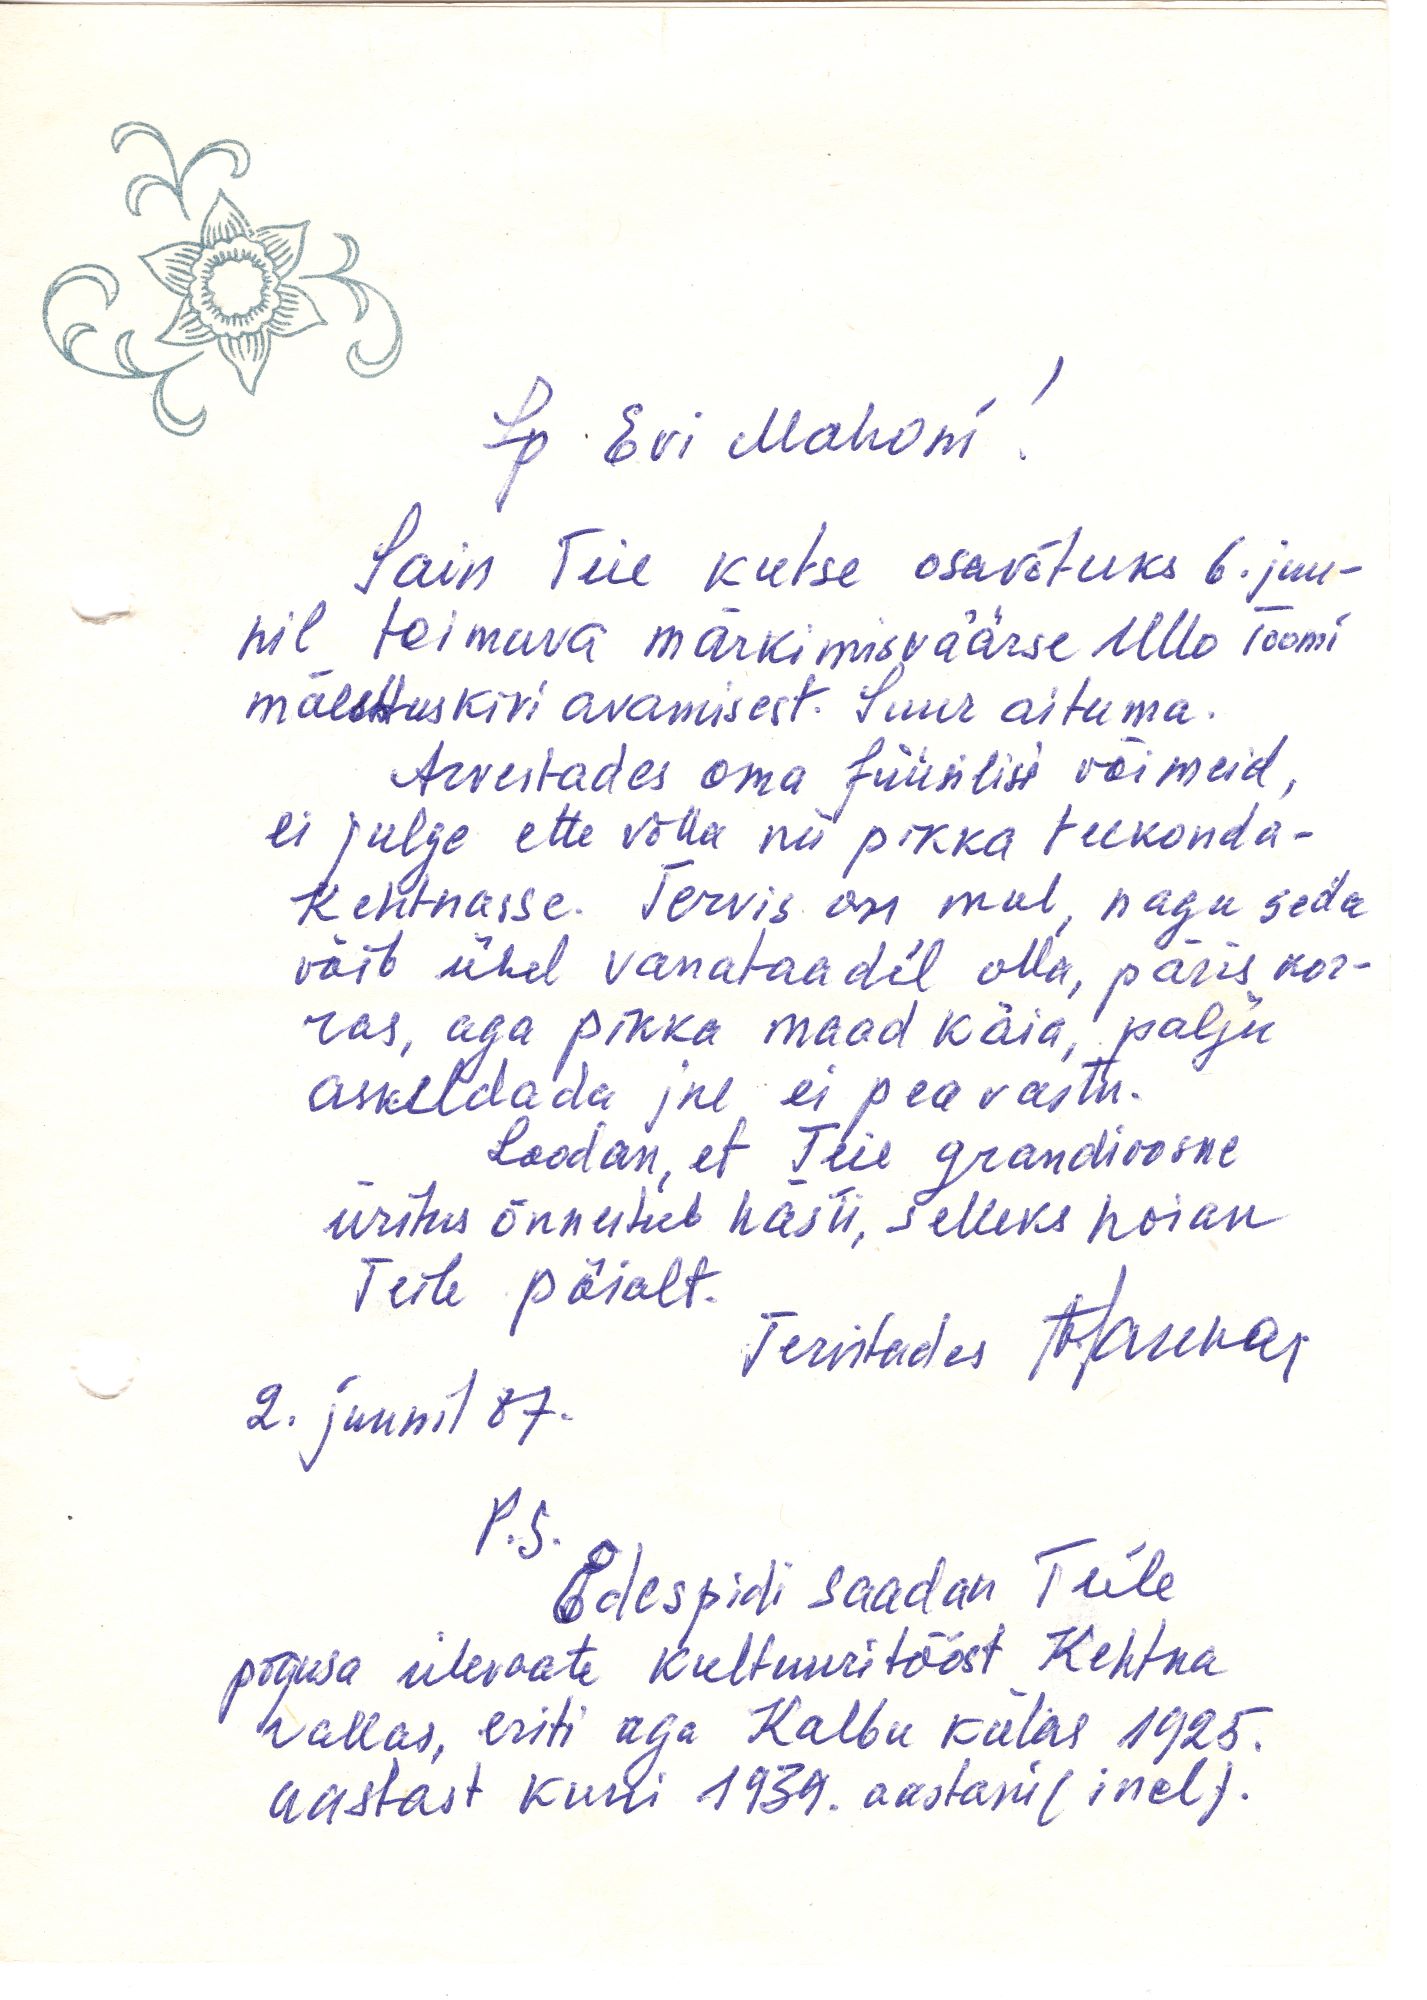 Lp. Evi Mahoni!
Sain Teie kutse osavõtuks 6. juu-
nil toimuva märkimisväärse Ullo Toomi
mälestuskivi avamisest. Suur aituma.
Arvestades oma füüsilisi võimeid,
ei julge ette võtta nii pikka teekonda-
Kehtnasse. Tervis on mul, nagu seda
võib ühel vanataadil olla, päris kor-
ras, aga pikka maad käia, palju
askeldada jne ei pea vastu.
Loodan, et Teie grandioosne
üritus õnnestub hästi, selleks hoian
Teile pöialt.
Tervitades
2. juunil 87.
P.S.
Edespidi saadan Teile
põgusa ülevaate kultuuritööst Kehtna
vallas, eriti aga Kalbu külas 1925.
aastast kuni 1939. aastani (incl).